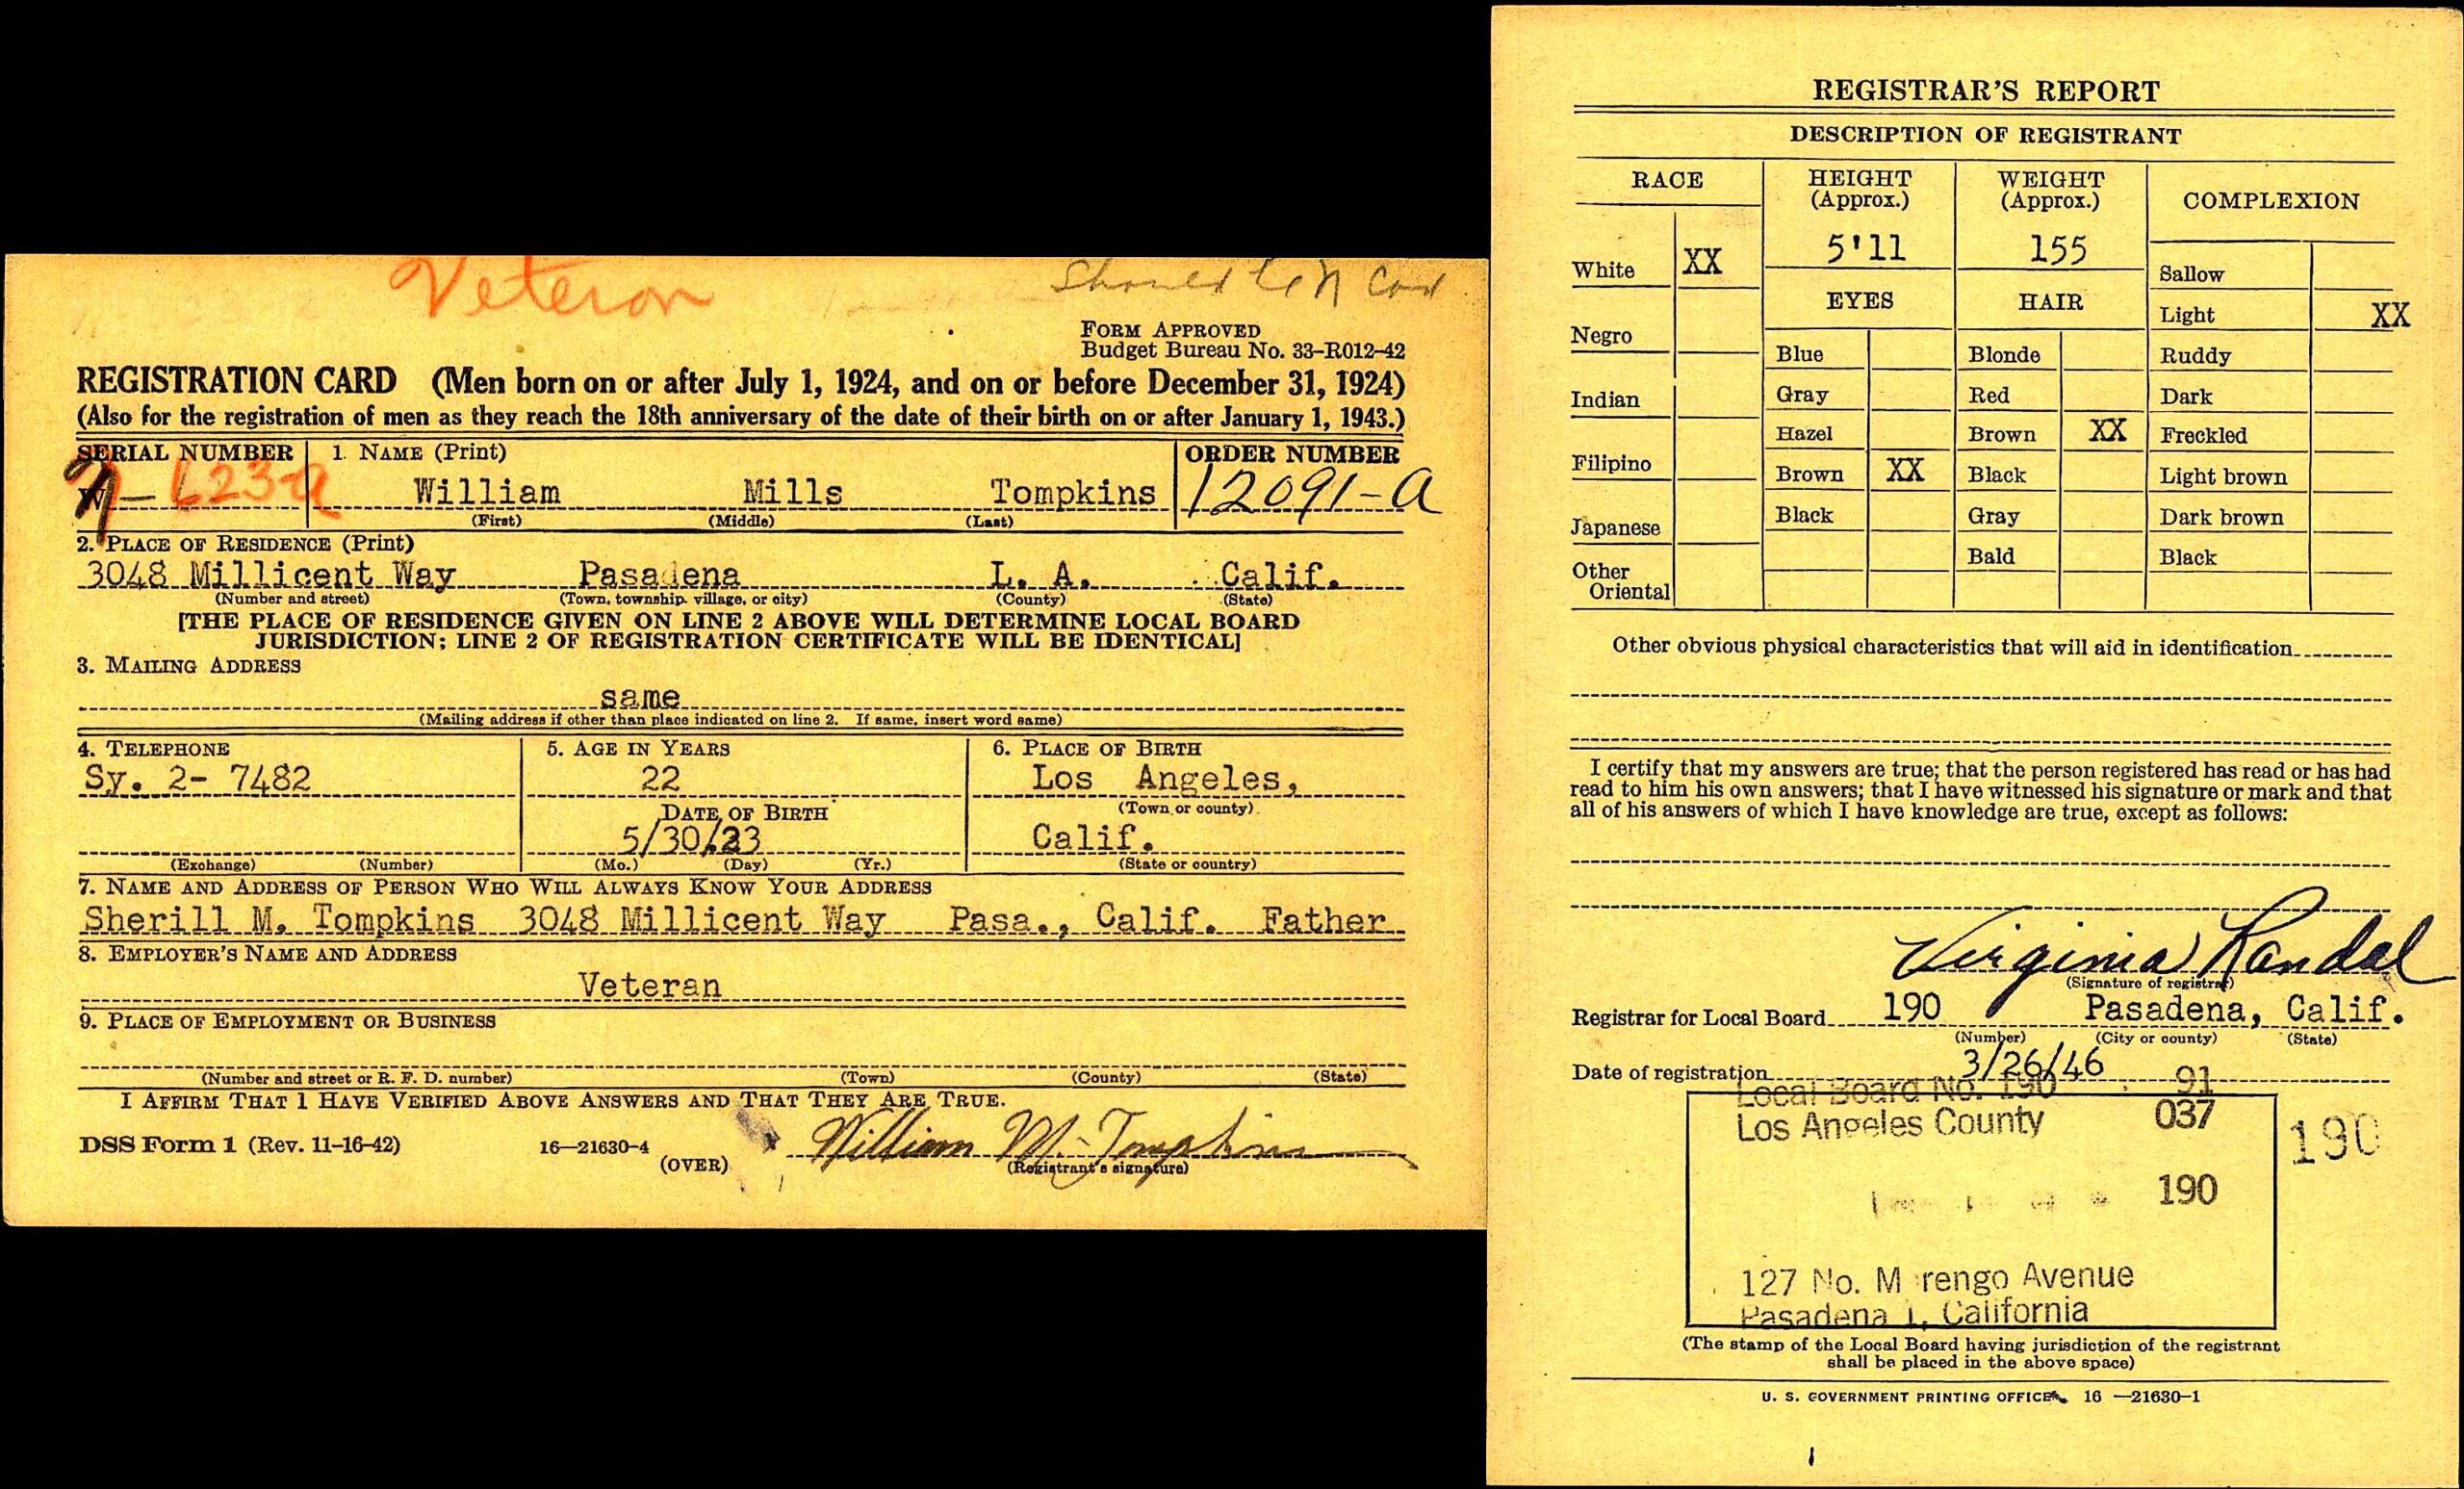 Veteran
Should be N Card
FORM APPROVED
Budget Bureau No. 33-R012-42
REGISTRATION CARD (Men born on or after July 1, 1924, and on or before December 31, 1924)
(Also for the registration of men as they reach the 18th anniversary of the date of their birth on or after January 1, 1943.)
SERIAL NUMBER 1. NAME (Print) ORDER NUMBER
W— 623-a William Mills Tompkins 12091-A
(First) (Middle) (Last)
2. PLACE OF RESIDENCE (Print)
3048 Millicent Way Pasadena L. A. Calif.
(Number and street) (Town, township, village, or city) (County) (State)
[THE PLACE OF RESIDENCE GIVEN ON LINE 2 ABOVE WILL DETERMINE LOCAL BOARD
JURISDICTION; LINE 2 OF REGISTRATION CERTIFICATE WILL BE IDENTICAL]
3. MAILING ADDRESS
same
(Mailing address if other than place indicated on line 2. If same, insert word same)
4. TELEPHONE 5. AGE IN YEARS 6. PLACE OF BIRTH
Sy. 2- 7482 22 Los Angeles,
DATE OF BIRTH (Town or county)
5/30/23 Calif.
(Exchange) (Number) (Mo.) (Day) (Yr.) (State or country)
7. NAME AND ADDRESS OF PERSON WHO WILL ALWAYS KNOW YOUR ADDRESS
Sherill M. Tompkins 3048 Millicent Way Pasa., Calif. Father
8. EMPLOYER'S NAME AND ADDRESS
Veteran
9. PLACE OF EMPLOYMENT OR BUSINESS
(Number and street or R. F. D. number) (Town) (County) (State)
I AFFIRM THAT I HAVE VERIFIED ABOVE ANSWERS AND THAT THEY ARE TRUE.
DSS Form 1 (Rev. 11-16-42) 16—21630-4 (OVER) x William M. Tompkins
(Registrant's signature)
REGISTRAR'S REPORT
DESCRIPTION OF REGISTRANT
RACE HEIGHT (Approx.) WEIGHT (Approx.) COMPLEXION
White XX 5'11 155 Sallow
EYES HAIR Light XX
Negro Blue Blonde Ruddy
Indian Gray Red Dark
Hazel Brown XX Freckled
Filipino Brown XX Black Light brown
Japanese Black Gray Dark brown
Other Oriental Bald Black
Other obvious physical characteristics that will aid in identification
I certify that my answers are true; that the person registered has read or has had
read to him his own answers; that I have witnessed his signature or mark and that
all of his answers of which I have knowledge are true, except as follows:
Virginia Randal
(Signature of registrar)
Registrar for Local Board 190 Pasadena, Calif.
(Number) (City or county) (State)
Date of registration 3/26/46
Local Board No. 190 91
Los Angeles County 037
190
190
127 No. M rengo Avenue
Pasadena 1, California
(The stamp of the Local Board having jurisdiction of the registrant
shall be placed in the above space)
U. S. GOVERNMENT PRINTING OFFICE 16—21630-1